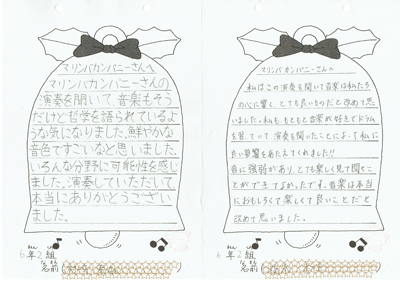 マリンバカンパニーさんへ
マリンバカンパニーさんの
演奏を聞いて、音楽もそう
だけど哲学を語られているよ
うな気になりました。鮮やかな
音色ですごいなと思いました。
いろんな分野に可能性を感じ
ました。演奏していただいて、
本当にありがとうござい
ました。
6年2組
名前
マリンバカンパニーさんへ
私はこの演奏を聞いて音楽は私たち
の心に響く、とても良いものだと改めて思
いました。私も、もともと音楽が好きでドラム
を習っていて演奏を聞いたことによって私に
良い影響をあたえてくれました!!
音に強弱があり、とても楽しく見て聞くこ
とができてよかったです。音楽は本当
におもしろくて楽しくて良いことだと
改めて思いました。
6年2組
名前